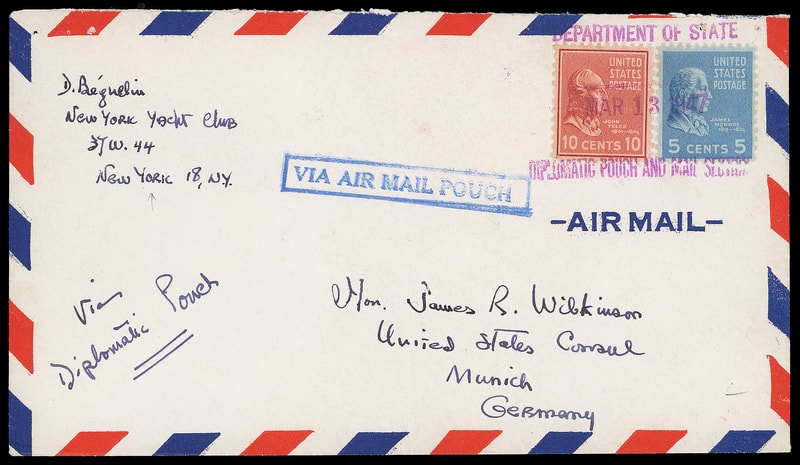 D. Béguelin
New York Yacht Club
37 W. 44
New York 18, N.Y.
DEPARTMENT OF STATE
MAR 13 1947
DIPLOMATIC POUCH AND MAIL SECTION
UNITED
STATES
POSTAGE
JOHN
TYLER
1841-1845
10 CENTS 10
UNITED
STATES
POSTAGE
JAMES
MONROE
5 CENTS 5
VIA AIR MAIL POUCH
-AIR MAIL-
Via
Diplomatic Pouch
Hon. James R. Wilkinson
United States Consul
Munich
Germany